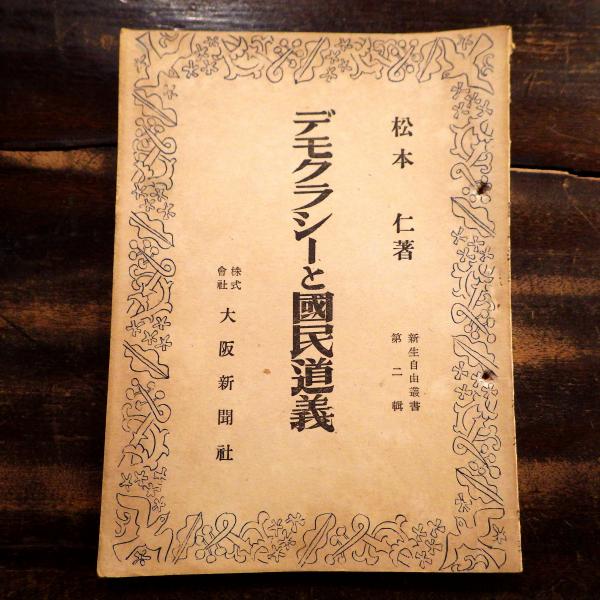 松本 仁著
新生自由叢書
第二輯
デモクラシーと國民道義
株式
會社
大阪新聞社